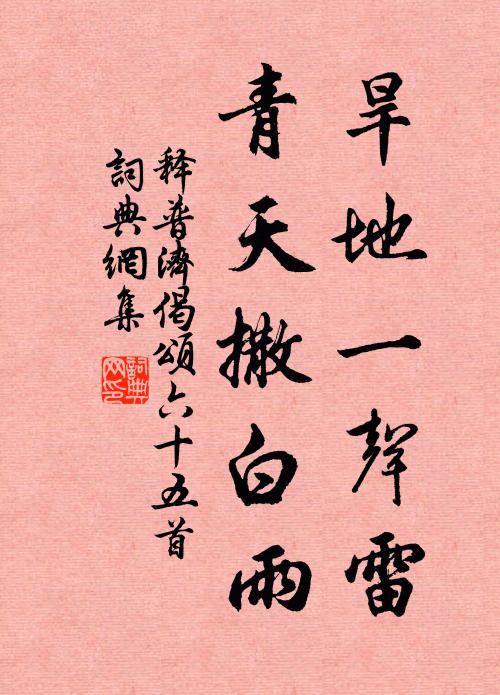 旱地一聲雷
青天撒白雨
释普濟偈頌六十五首
詞典網集
詞典
网印